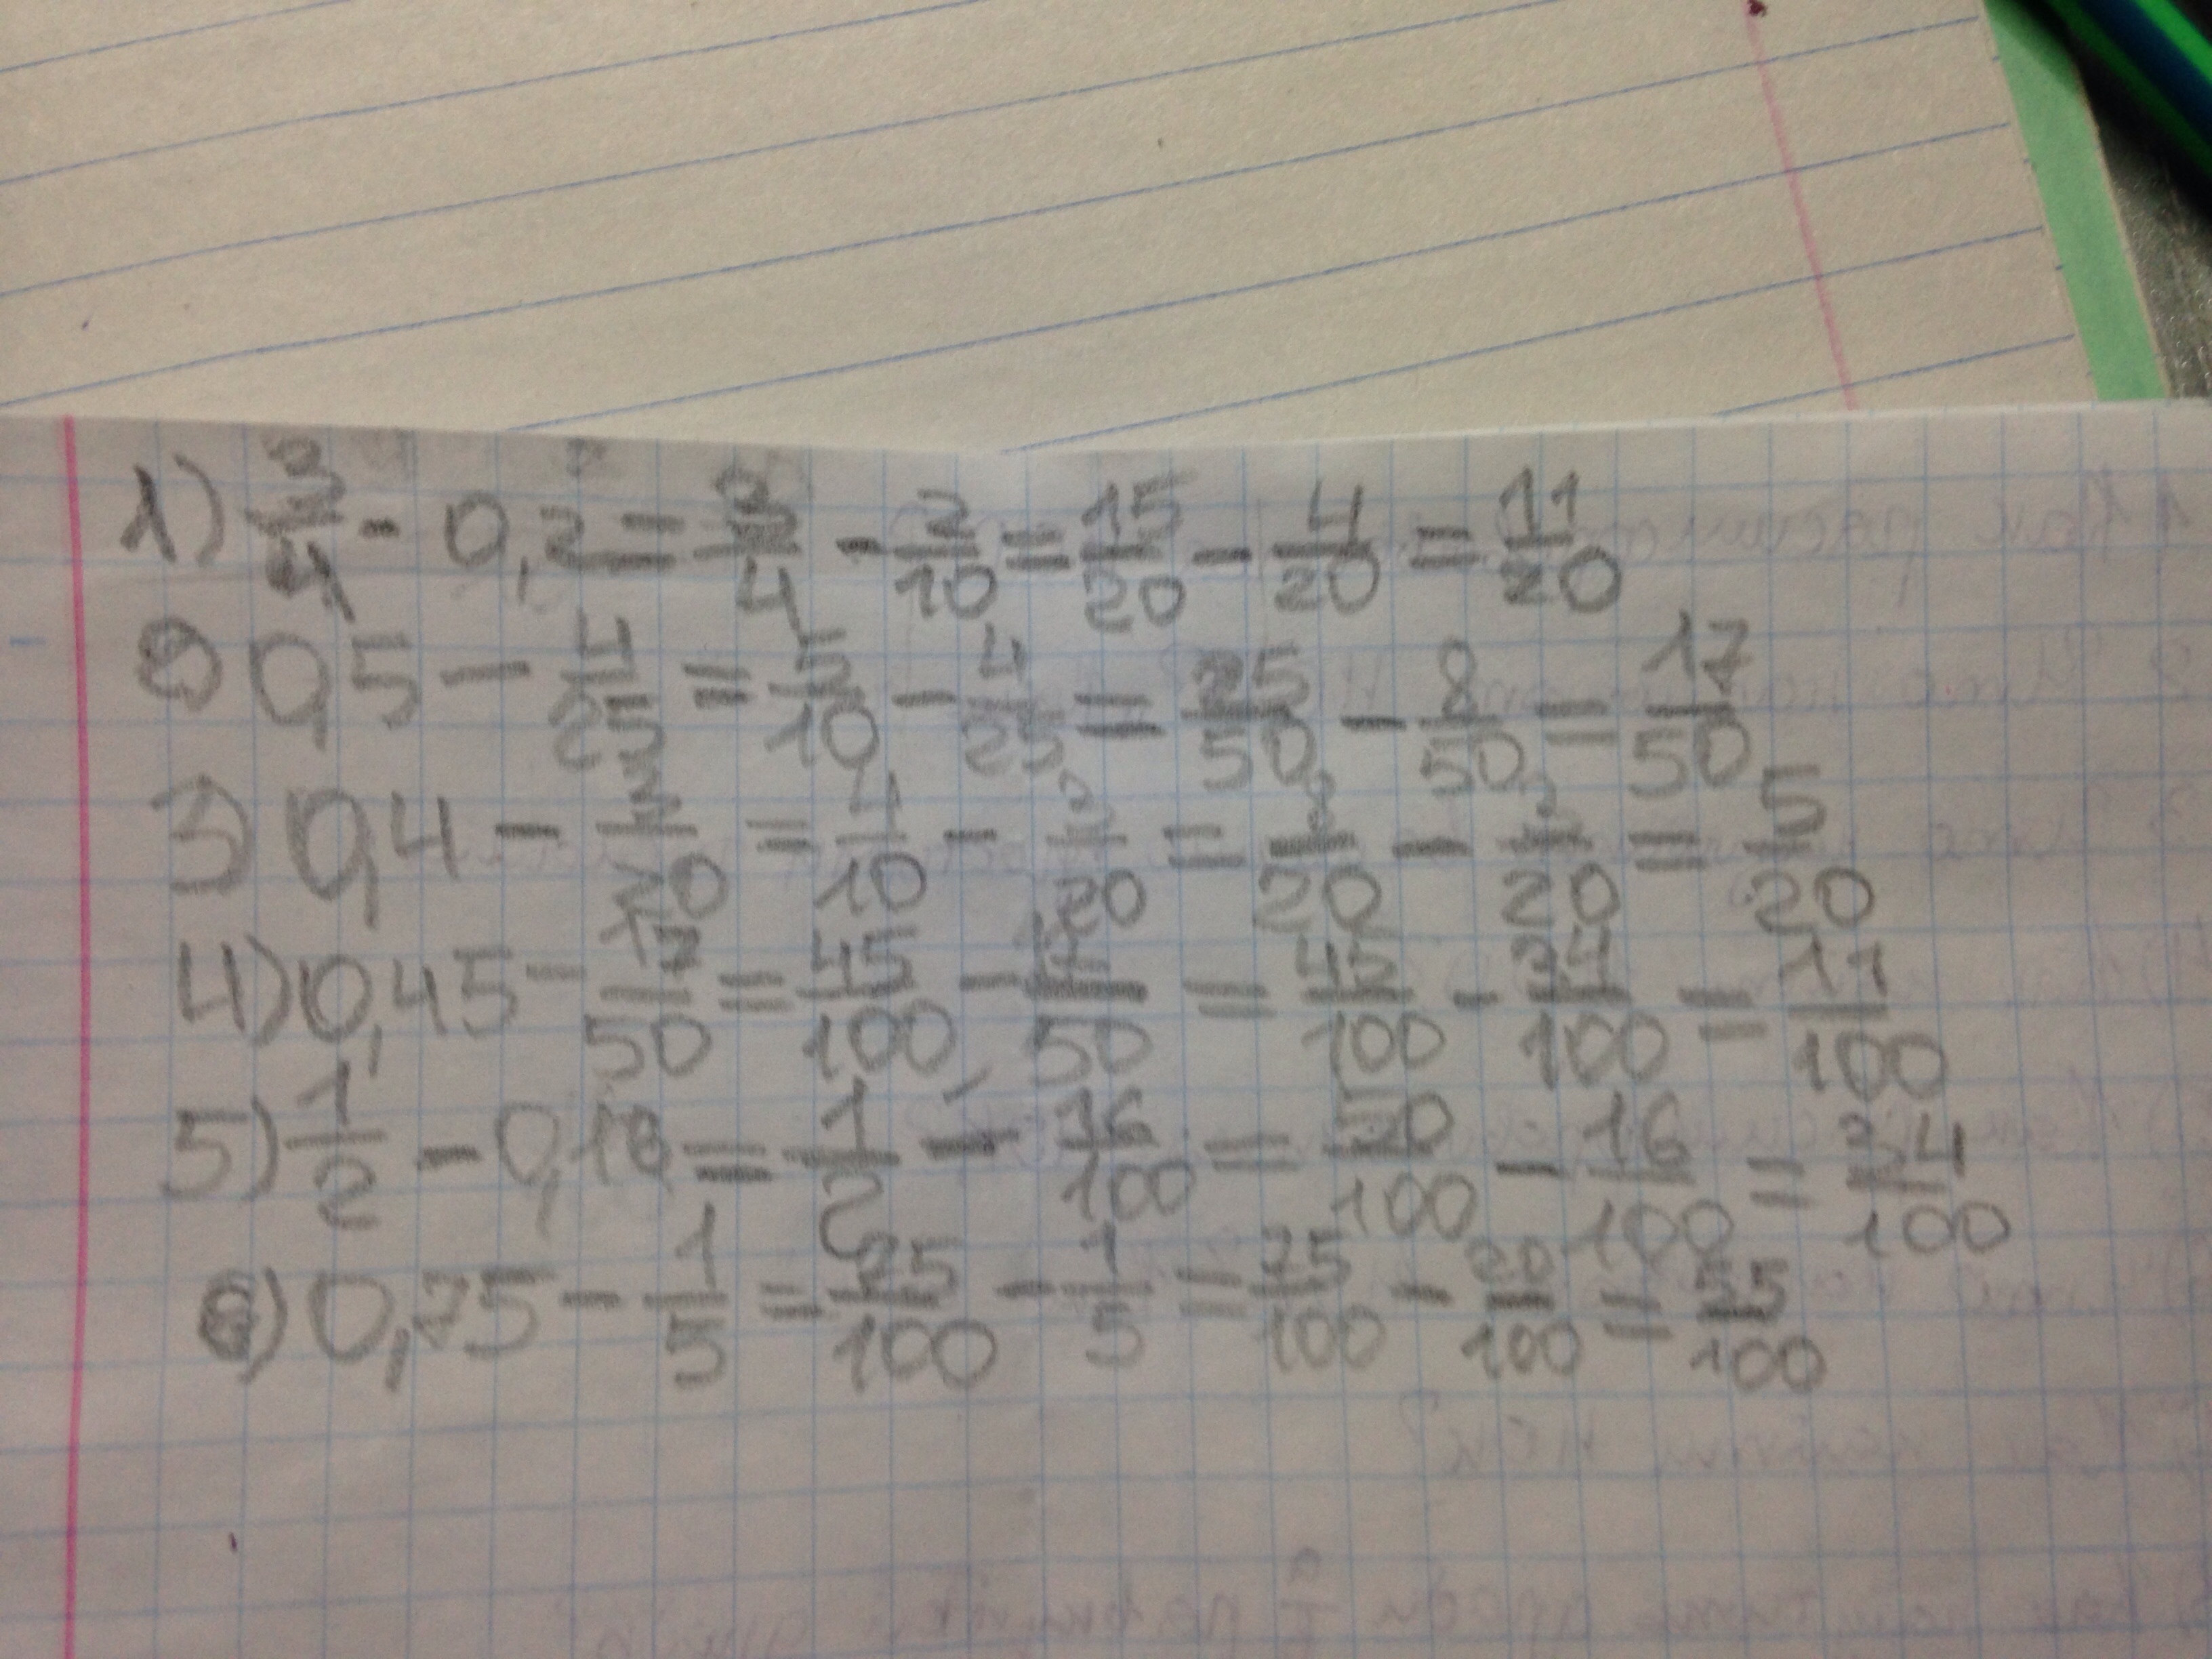 1) 3/4 - 0,2 = 3/4 - 2/10 = 15/20 - 4/20 = 11/20
2) 0,5 - 4/25 = 5/10 - 4/25 = 25/50 - 8/50 = 17/50
3) 0,4 - 3/20 = 4/10 - 3/20 = 8/20 - 3/20 = 5/20
4) 0,45 - 17/50 = 45/100 - 17/50 = 45/100 - 34/100 = 11/100
5) 1/2 - 0,16 = 1/2 - 16/100 = 50/100 - 16/100 = 34/100
6) 0,75 - 1/5 = 75/100 - 1/5 = 75/100 - 20/100 = 55/100